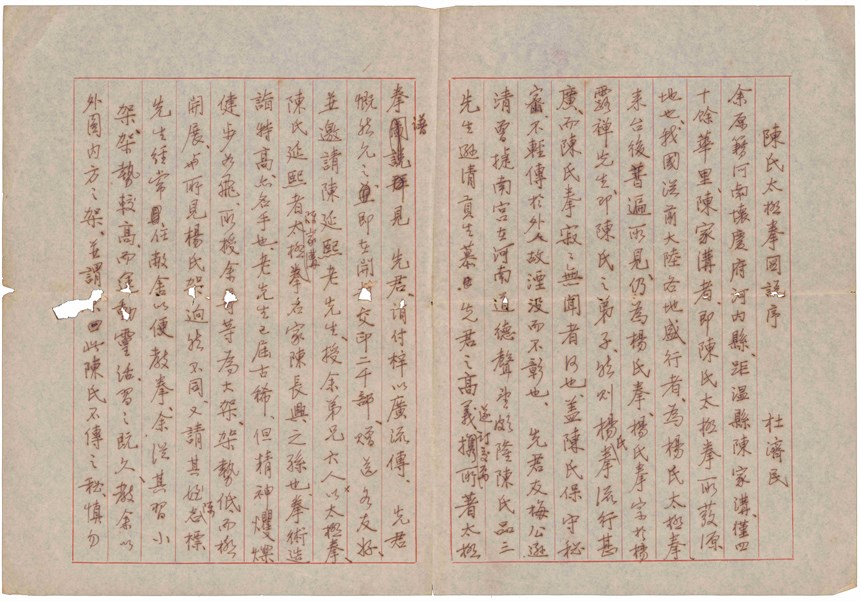 陳氏太極拳圖說序　　杜濟民
余原籍河南懷慶府河內縣、距溫縣陳家溝、僅四
十餘華里、陳家溝者、即陳氏太極拳所發源
地也、我國從前大陸各地盛行者、為楊氏太極拳、
來台後普遍所見、仍為楊氏拳、楊氏拳宗於楊
露禪先生、即陳氏之弟子、然則楊氏拳流行甚
廣、而陳氏拳寂寂無聞者何也、蓋陳氏保守秘
密、不輕傳於外人、故湮沒而不彰也、先君友梅公遜
清曾捷南宮、在河南道德聲望頗隆、陳氏品三
先生遜清貢生、慕先君之高義、攜所著太極
拳譜見先君、請付梓以廣流傳、先君
慨然允之、即在開封交印二千部、贈送各友好、
並邀請陳延熙老先生、授余弟兄六人以太極拳、
陳氏延熙者、陳家溝太極拳名家陳長興之孫也、拳術造
詣特高、名手也、老先生已屆古稀、但精神矍爍
健步如飛、所授余等為大架、架勢低而極
開展、與所見楊氏架迥然不同、又請其侄陳標
先生經常住敝舍、以便教拳、余從其習小
架、架勢較高、而靈活、習之既久、教余以
外圓內方之架、並謂此陳氏不傳之秘、慎勿